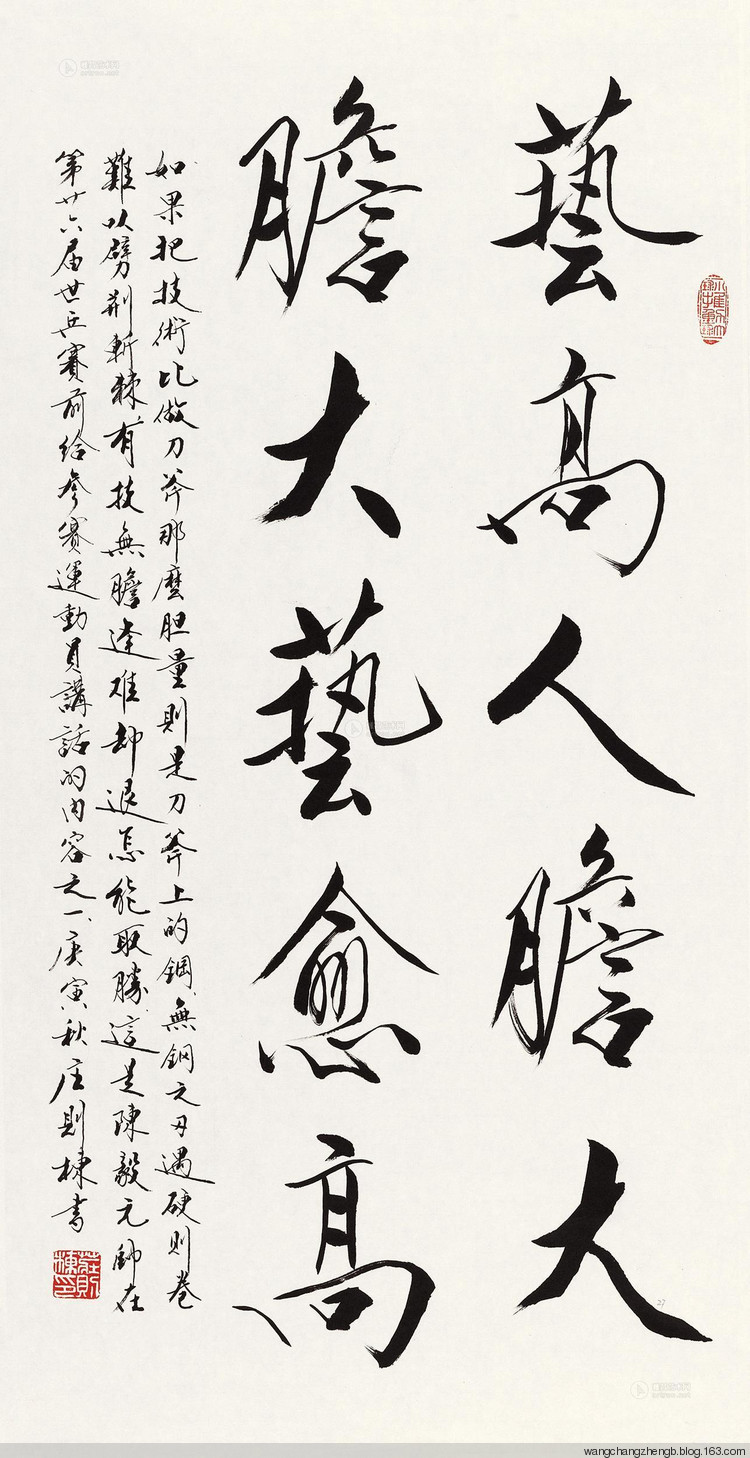 藝高人膽大
膽大藝愈高
如果把技術比做刀斧那麼胆量則是刀斧上的鋼無鋼之刃遇硬則卷
難以劈荆斬棘有技無膽逢难却退怎能取勝這是陳毅元帥在
第廿六届世乒賽前給參賽運動員講話的内容之一庚寅秋庄則棟書
莊則棟印
wangchangzhengb.blog.163.com